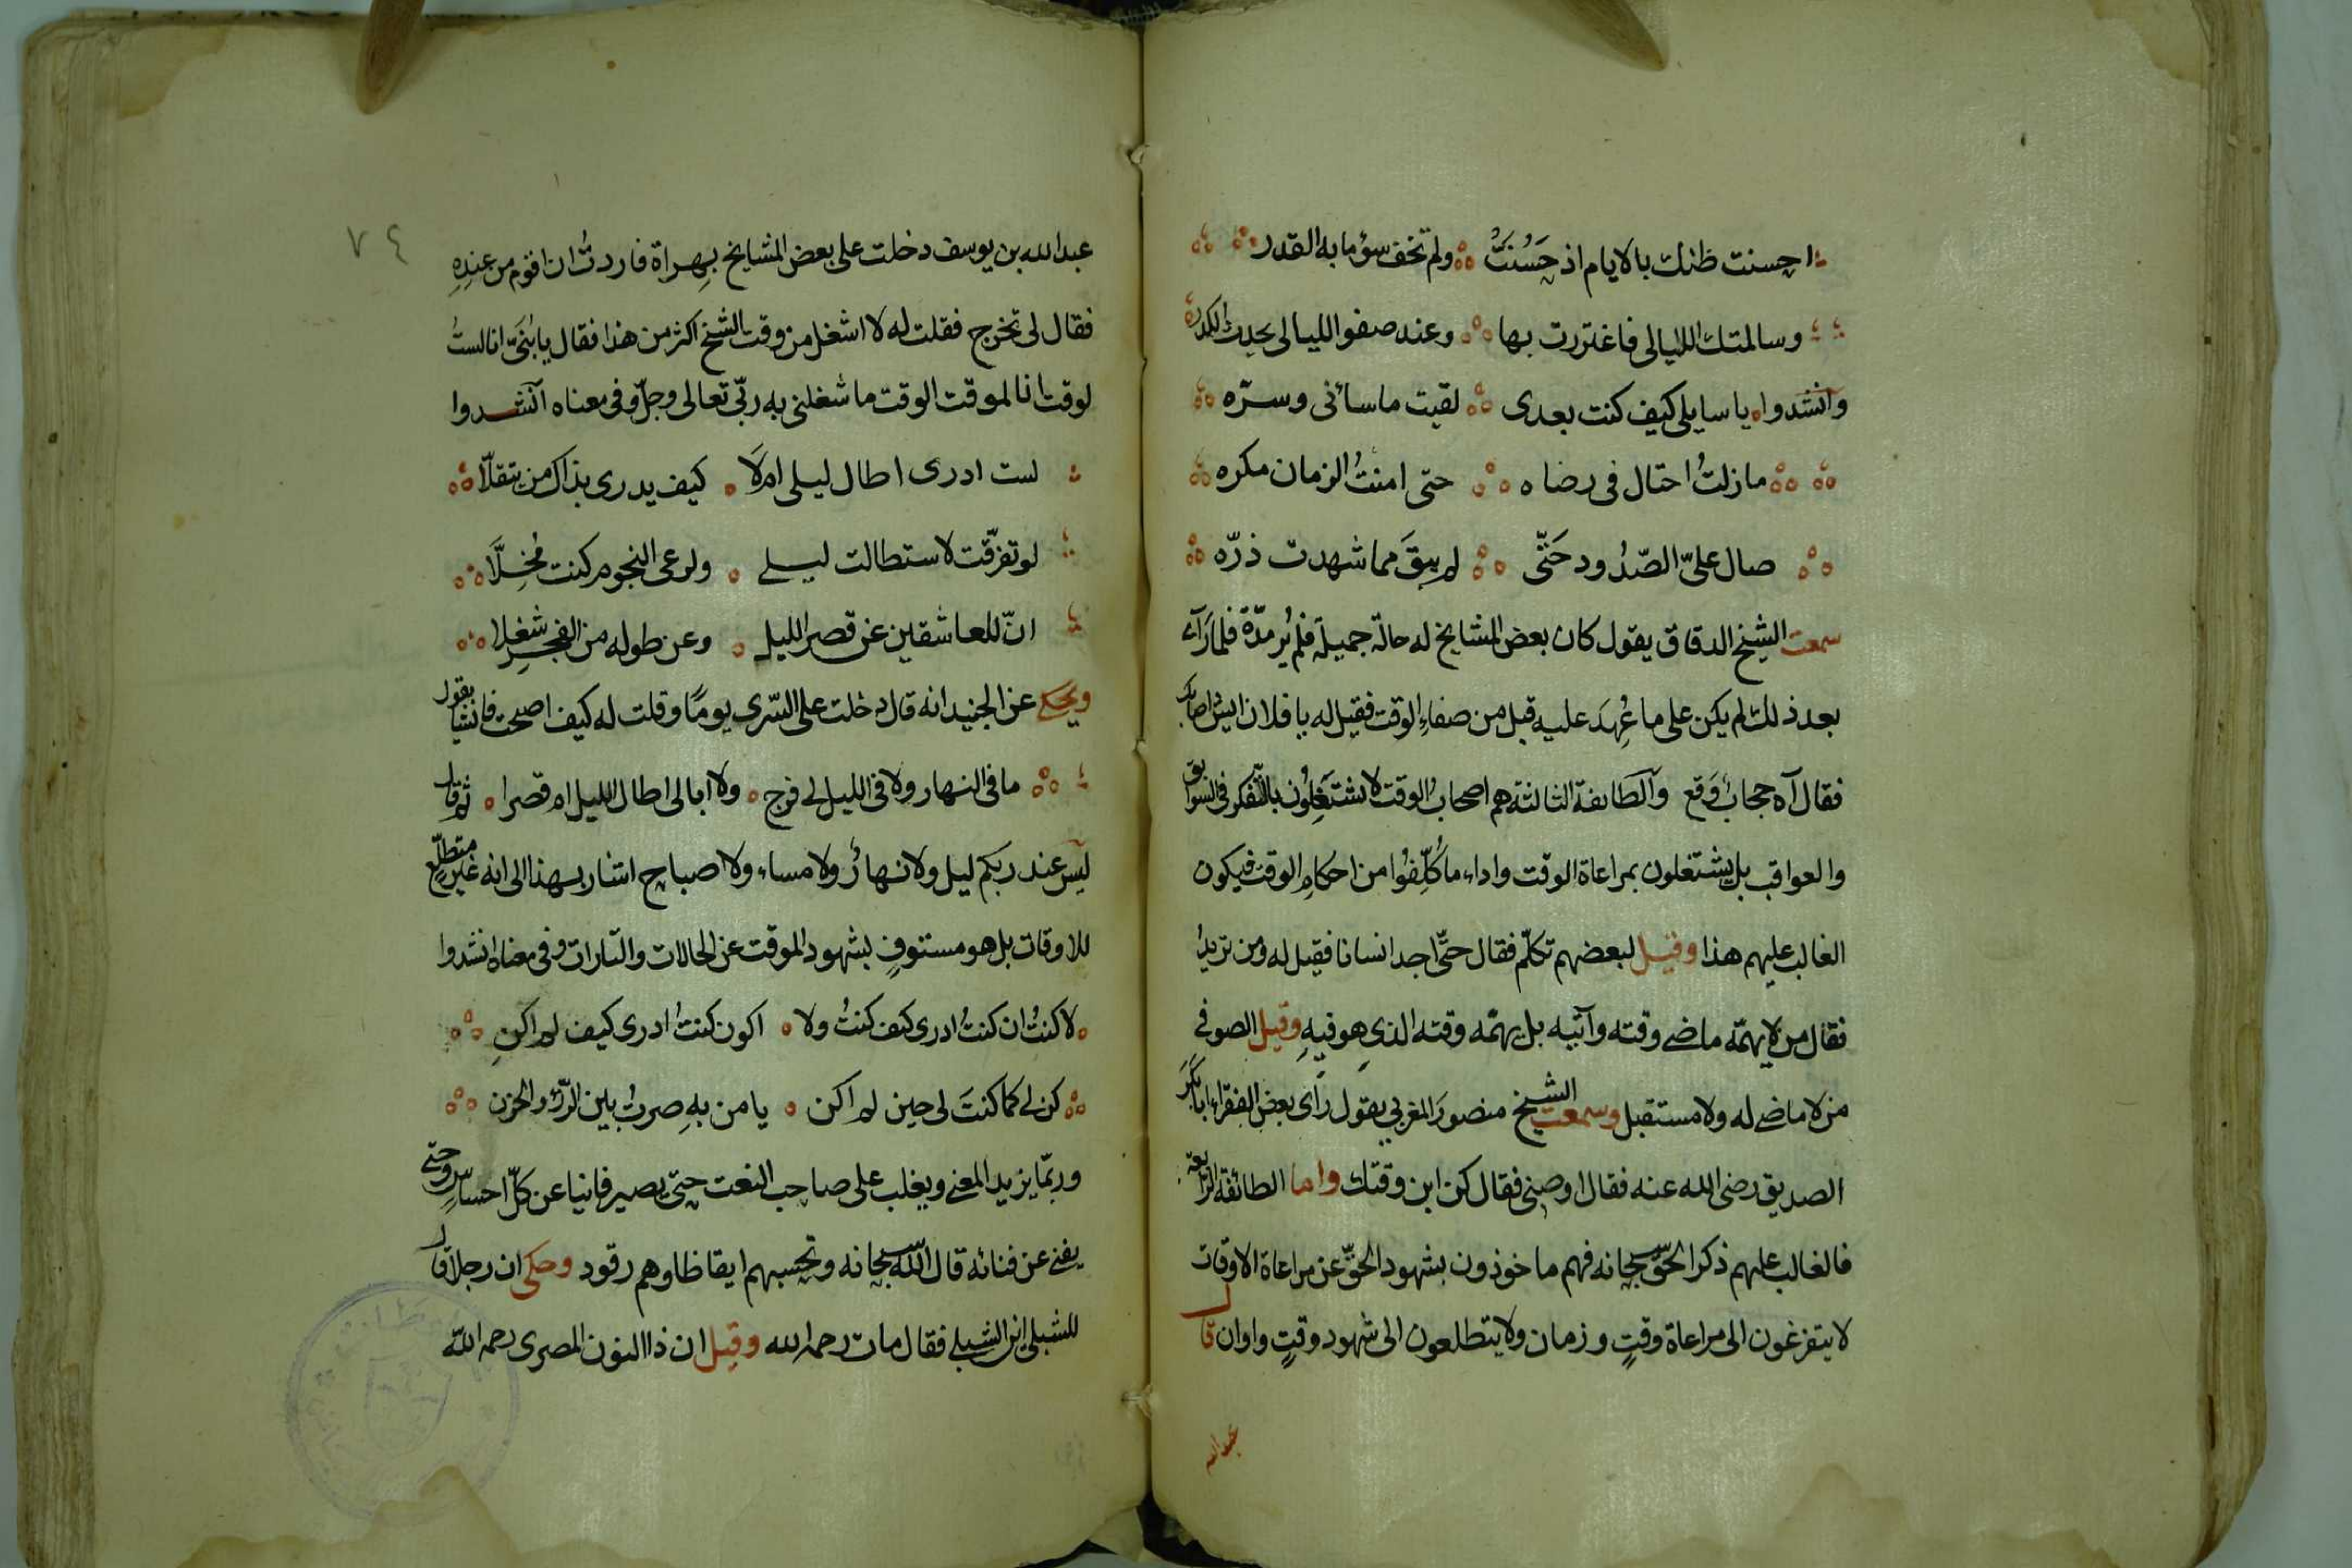 احسنت ظنك بالايام اذ حَسُنَتْ ولم تخف سؤ ما به القدر
وسالمتك الليالى فاغتررت بها وعند صفو الليالى يحدث الكدر
وانشدوا يا سايلى كيف كنت بعدى لقيت ما سائنى وسرّه
مازلتُ احتال فى رضاه حتى امنتُ الزمان مكره
صال علىّ الصّدُود حَتّى لم يبقَ مما شهدت ذرّه
سمعت الشيخ الدقاق يقول كان بعض المشايخ له حالة جميلة فلم يُر مدّة فلما رَآى
بعد ذلك لم يكن على ما عُهِدَ عليه قبل من صفاءِ الوقت فقيل له يا فلان ايش اصابك
فقال آه حجابٌ وَقع والطائفة الثالثة هم اصحاب الوقت لا يشتَغِلُون بالتّفكر فى السوابق
والعواقب بل يشتغلون بمراعاة الوقت واداء ما كُلِّفُوا من احكامِ الوقت فيكون
الغالب عليهم هذا وقيل لبعضهم تكلّم فقال حتّى اجد انسانا فقيل له ومن تريدُ
فقال من لا يهمّه ماضى وقته وآتيه بل يهمّه وقته الذى هو فيهِ وقيل الصوفى
من لا ماضى له ولا مستقبل وسمعت الشيخ منصورَ المغربى يقول رأى بعض الفقراءِ ابا بَكرَ
الصديق رضى الله عنه فقال اوصنى فقال كن ابن وقتك واما الطائفة الرابعة
فالغالب عليهم ذكر الحقّ سبحانه فهم ماخوذون بشهود الحقّ عن مراعاة الاوقات
لا يتفرغون الى مراعاة وقتٍ وزمان ولا يتطلعون الى شهود وقتٍ واوان قال
عبد الله
٧٤
عبد الله بن يوسف دخلت على بعض المشايخ بِهراة فاردتُ ان اقوم من عندِهِ
فقال لى تخرج فقلت له لا اشغل من وقت الشيخ اكثر من هذا فقال يا بُنَىّ انا لستُ
لوقت انا لموقت الوقت ما شغلنى به ربّى تعالى وجلّ وفى معناه آنشدوا
لست ادرى اطال ليلى ام لَا كيف يدرى بذاك من يتقلّا
لو تفرّقت لاستطالت ليلى ولرعى النجوم كنت مُخِلَّا
انّ للعاشقين عن قصر الليل وعن طوله من الفجرِ شغلا
ويحكى عن الجنيد انه قال دخلت على السّرى يومًا وقلت له كيف اصبحت فانشأ يقول
ما فى النهار ولا فى الليل لى فرج ولا ابالى اطال الليل ام قصرا ثم قال
ليس عند ربكم ليل ولا نهارٌ ولا مساء ولا اصباح اشار بهذا الى انه غير متطلّعٍ
للاوقات بل هو مستنوفٍ بشهود الموقت عن الحالات والتارات وفى معناه انشدوا
لا كنتُ ان كنتُ ادرى كيف كنتُ ولا اكون كنتُ ادرى كيف لم اكنِ
كن لى كما كنتَ لى حين لم اكن يا من بهِ صرتُ بين الرّزْؤ والحزن
وربمّا يزيد المعنى ويغلب على صاحب النعت حتى يصير فانيا عن كلّ احساسٍ وحتى
يفنى عن فنائه قال الله سبحانه وتحسبهم ايقاظا وهم رقود وحكى ان رجلا قال
للشبلى اين الشبلى فقال مات رحمه الله وقيل ان ذا النون المصرى رحمه الله